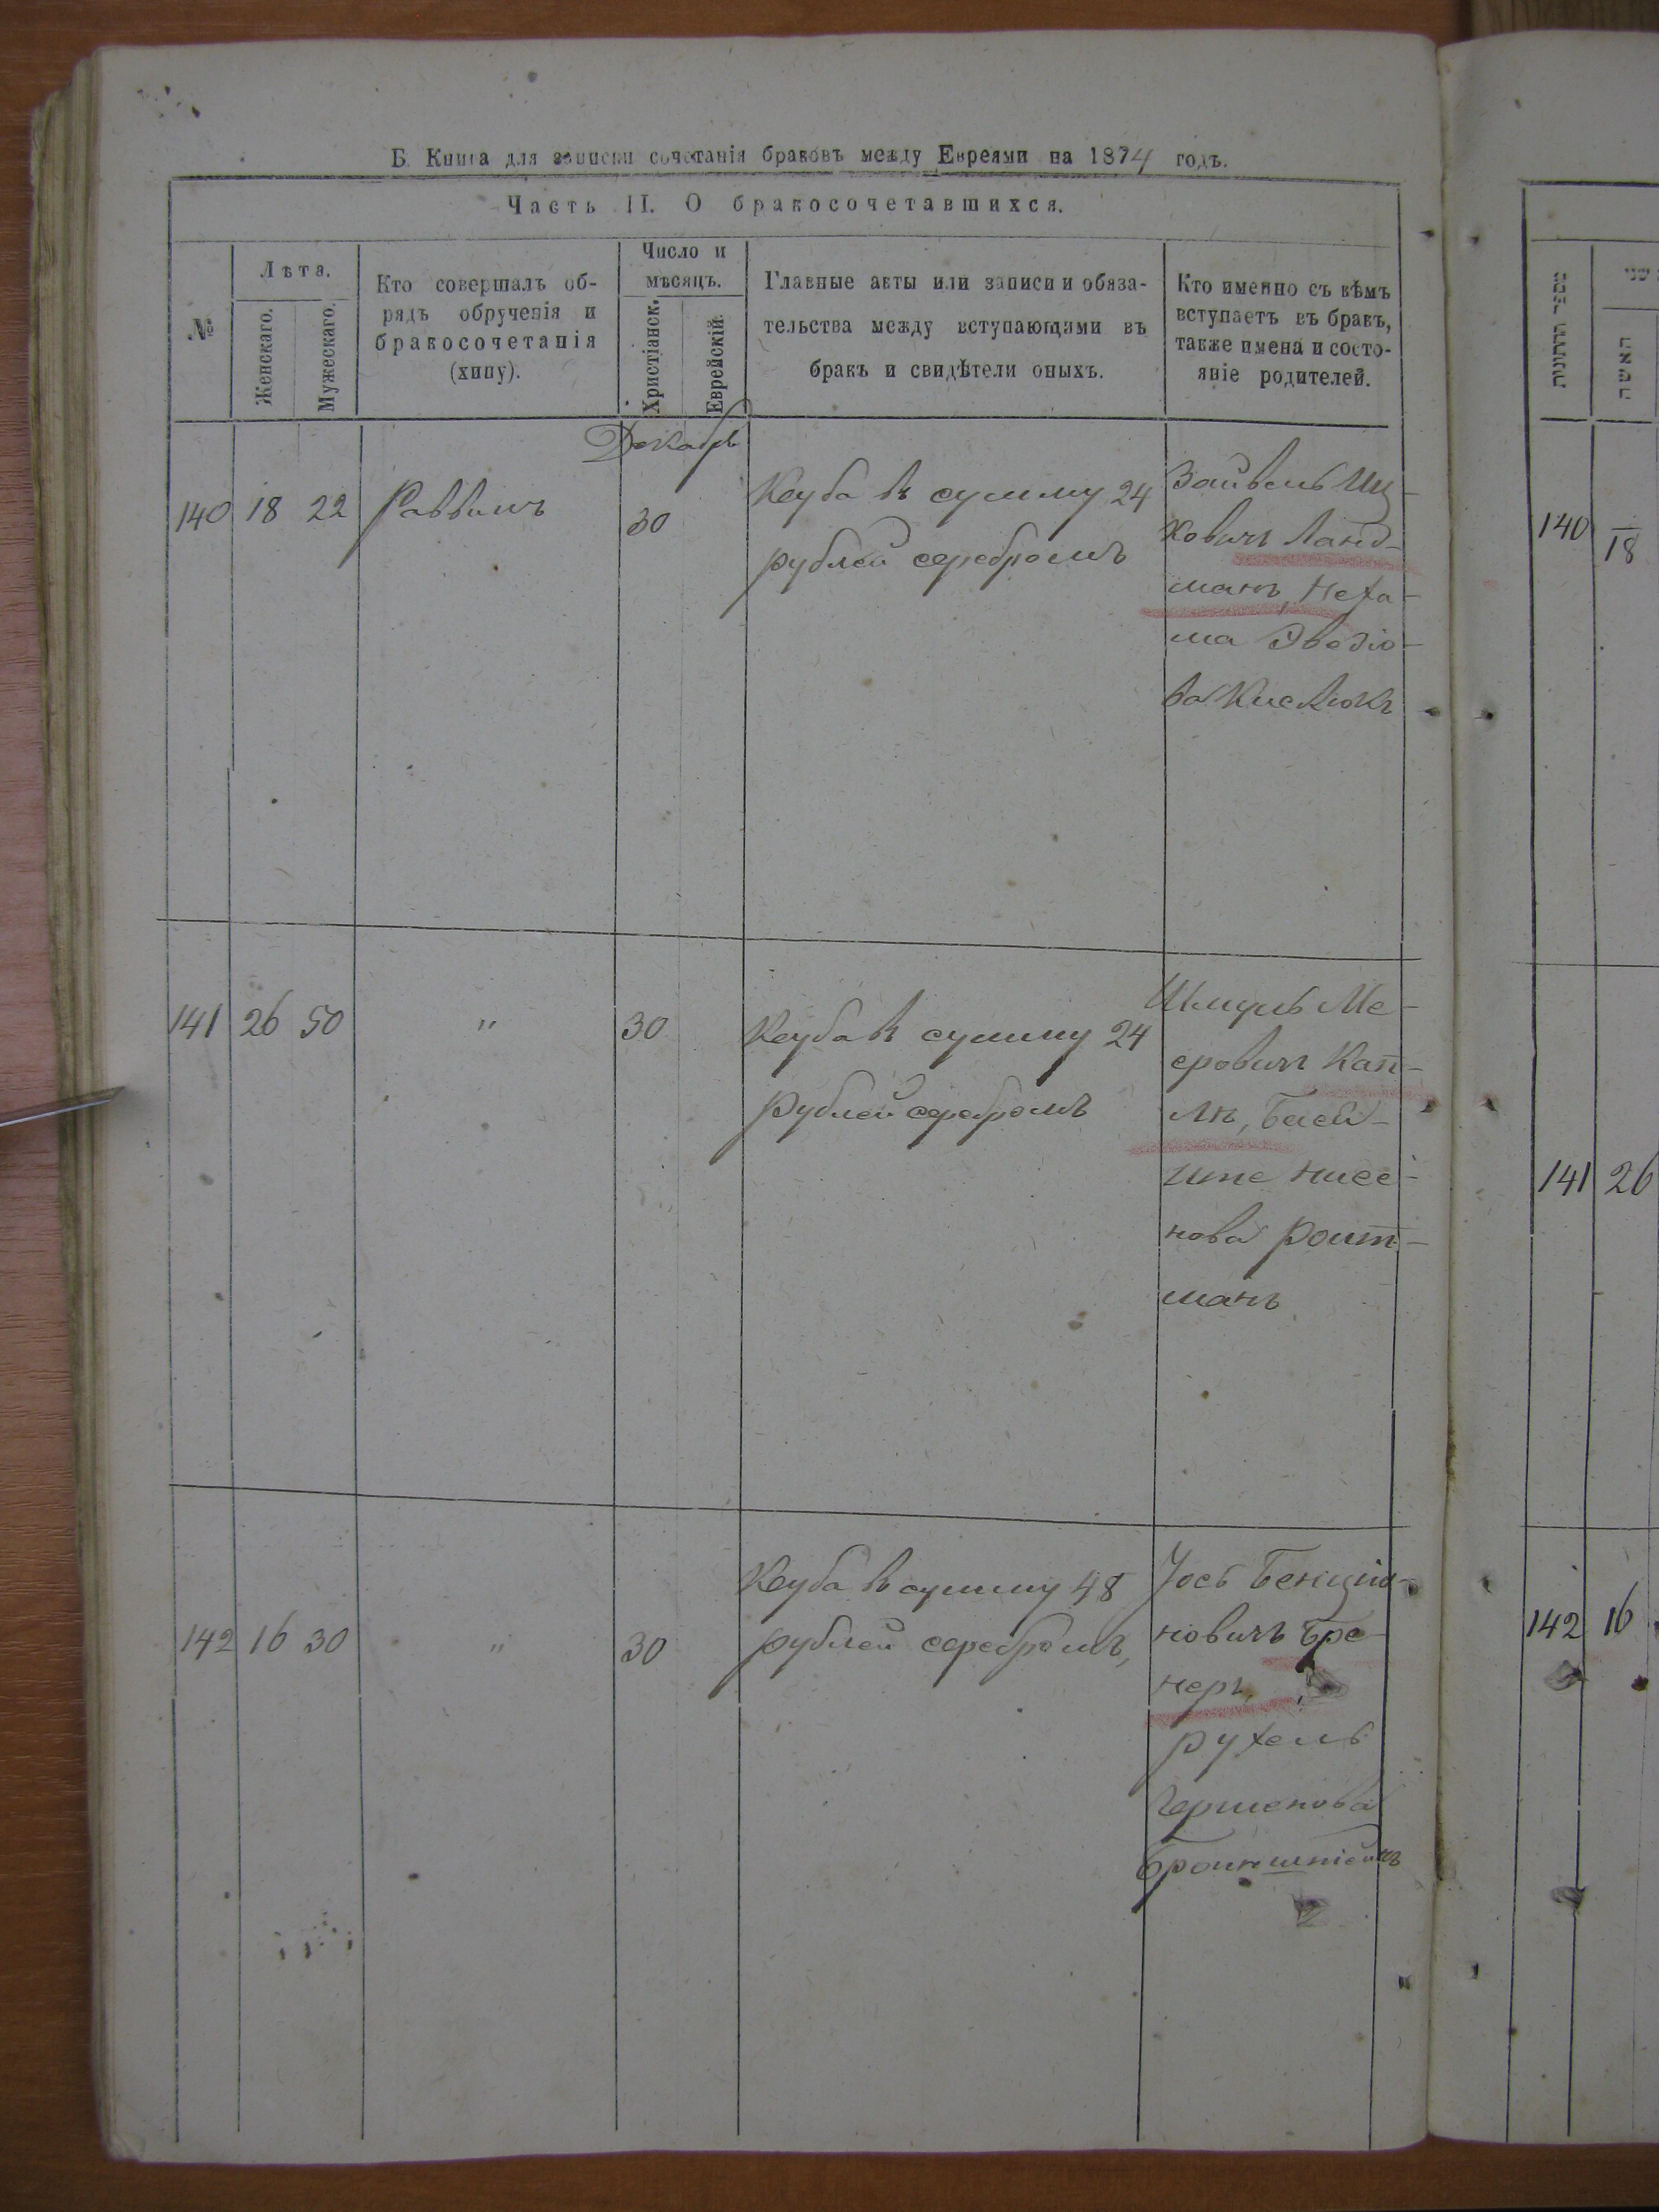 Б. Книга для записки сочетанія браковъ между Евреями на 1874 годъ.
Часть II. О бракосочетавшихся.
№
Лѣта.
Женскаго.
Мужескаго.
Кто совершалъ об-
рядъ обрученія и
бракосочетанія
(хипу).
Число и
мѣсяцъ.
Христіанск.
Еврейскій.
Главные акты или записи и обяза-
тельства между вступающими въ
бракъ и свидѣтели оныхъ.
Кто именно съ кѣмъ
вступаетъ въ бракъ,
также имена и состо-
яніе родителей.
Декабрь
140 18 22 Раввинъ 30
Ксуба въ сумму 24
рублей серебромъ
Зайвель Иц-
ковичъ Ланд-
манъ, Неха-
ма
ва Кислюкъ
141 26 50 " 30
Ксуба въ сумму 24
рублей серебромъ
Шмуль Ме-
еровичъ Кап-
лъ,
нова Роит-
манъ
142 16 30 " 30
Ксуба въ сумму 48
рублей серебромъ,
Іось Бенціа-
новичъ Бре-
неръ,
Рухель
Гершенова
Бронштейнъ
מספר החתונות
האשה
140 18
141 26
142 16